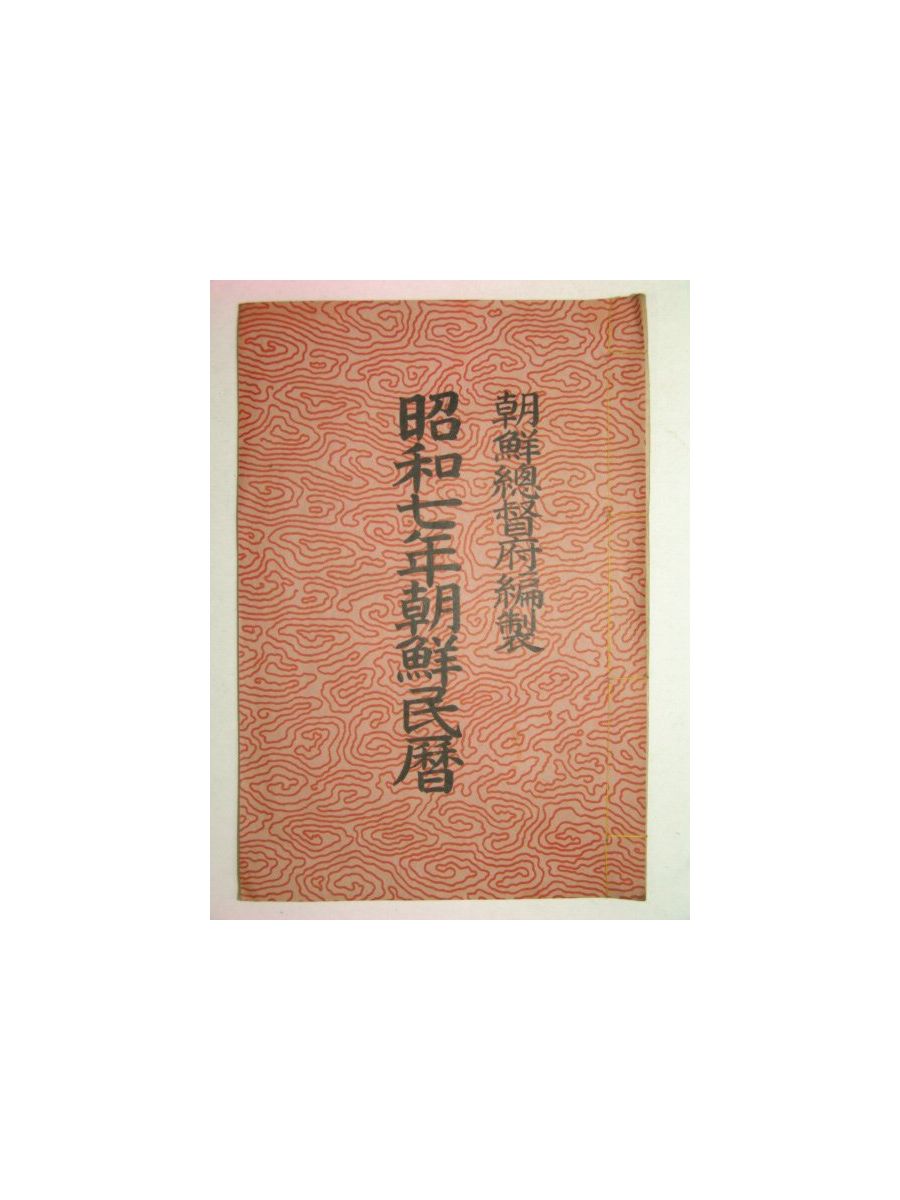 朝鮮總督府編製
昭和七年朝鮮民曆